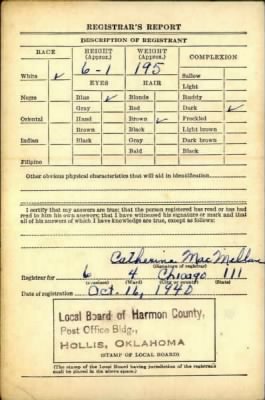 REGISTRAR'S REPORT
DESCRIPTION OF REGISTRANT
RACE HEIGHT (Approx.) WEIGHT (Approx.) COMPLEXION
White ✓ 6-1 195 Sallow
EYES HAIR Light
Negro Blue ✓ Blonde Ruddy
Gray Red Dark ✓
Oriental Hazel Brown ✓ Freckled
Brown Black Light brown
Indian Black Gray Dark brown
Bald Black
Filipino
Other obvious physical characteristics that will aid in identification
I certify that my answers are true; that the person registered has read or has had
read to him his own answers; that I have witnessed his signature or mark and that
all of his answers of which I have knowledge are true, except as follows:
Catherine Mac
(Signature of registrar)
Registrar for 6 4 Chicago Ill
(Precinct) (Ward) (City or county) (State)
Date of registration Oct. 16, 1940
Local Board of Harmon County,
Post Office Bldg.,
HOLLIS, OKLAHOMA
(STAMP OF LOCAL BOARD)
(The stamp of the Local Board having jurisdiction of the registrant
shall be placed in the above space.)